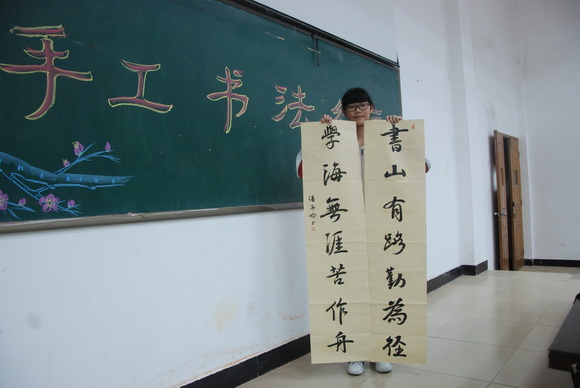 手工书法
書山有路勤為徑
學海無涯苦作舟